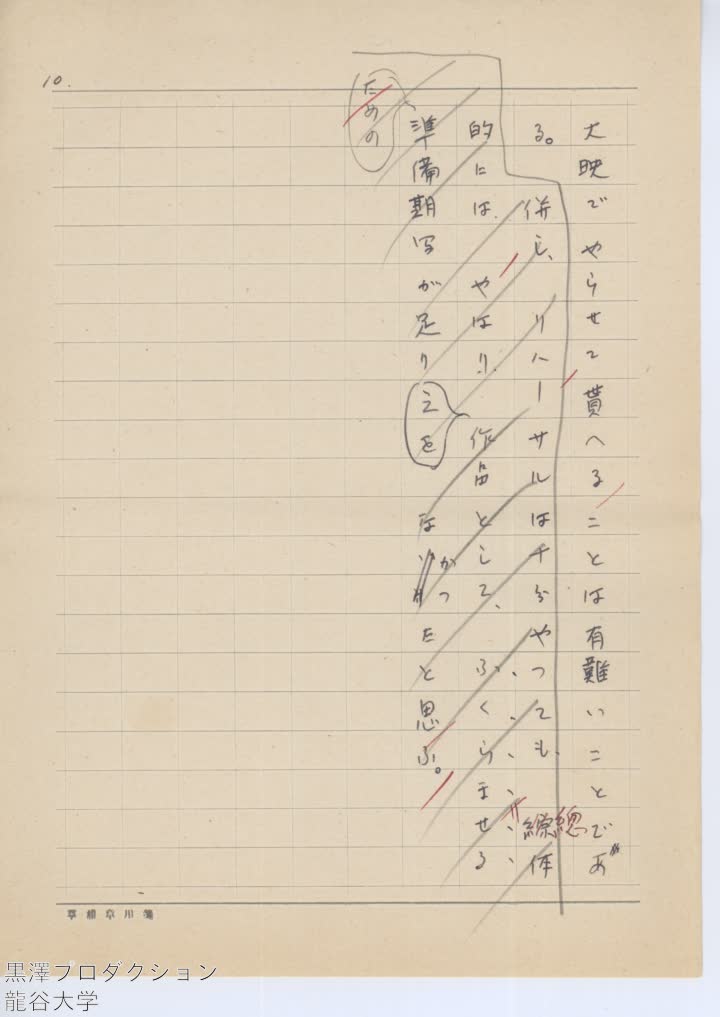 10.
大映でやらせて貰へることは有難いことであ
る。併し、リハーサルは十分やつても、總体
的には、やはり、作品として、ふくらませる
ための
準備期间が足り
之を
な
かつ
たと思ふ。
黒澤プロダクション
龍谷大学